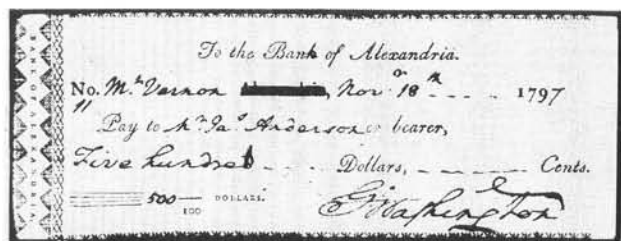 BANK OF ALEXANDRIA.
To the Bank of Alexandria.
No. Mt. Vernon, Novr. 18th 1797
11
Pay to Mr. Jas. Anderson or bearer,
Five hundred Dollars, Cents.
500 DOLLARS.
100
G Washington